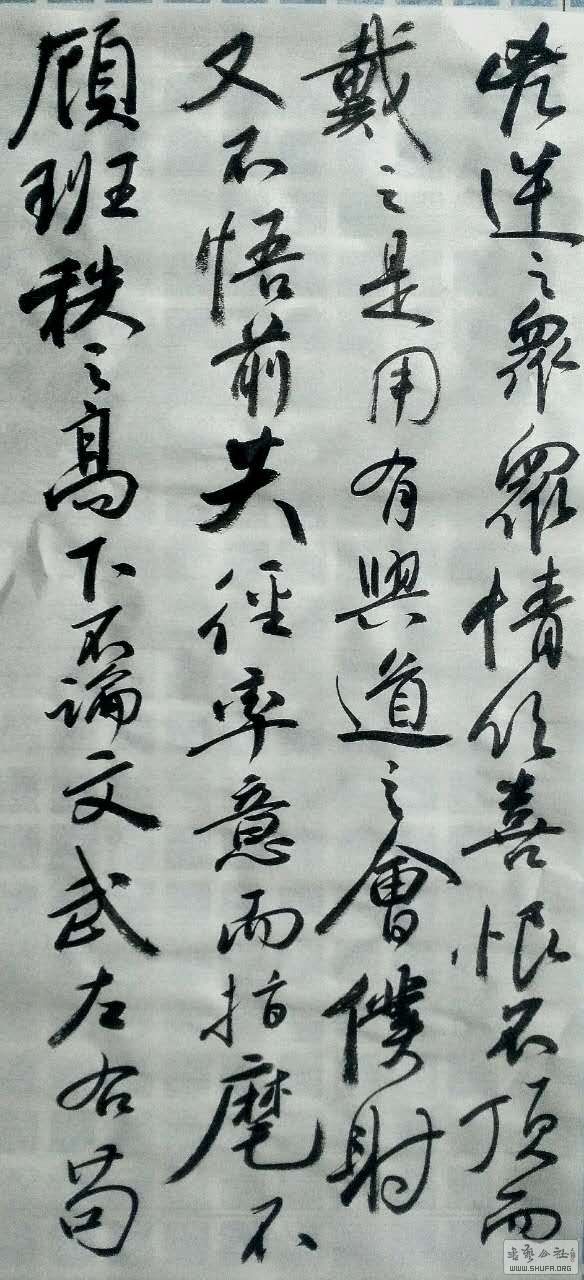 喾逆之眾眾情欣喜恨不頂而
戴之是用有興道之會僕射
又不悟前失徑率意而指麾不
顧班秩之高下不論文武左右苟
WWW.SHUFA.ORG